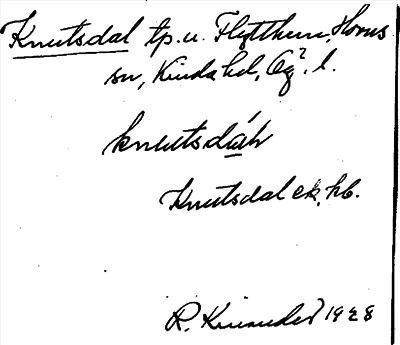 Knutsdal tp. u. Flytthem, Horns
sn, Kinda hd, Ög.
knutsdáh
Knutsdal ek. kb.
R. 1928